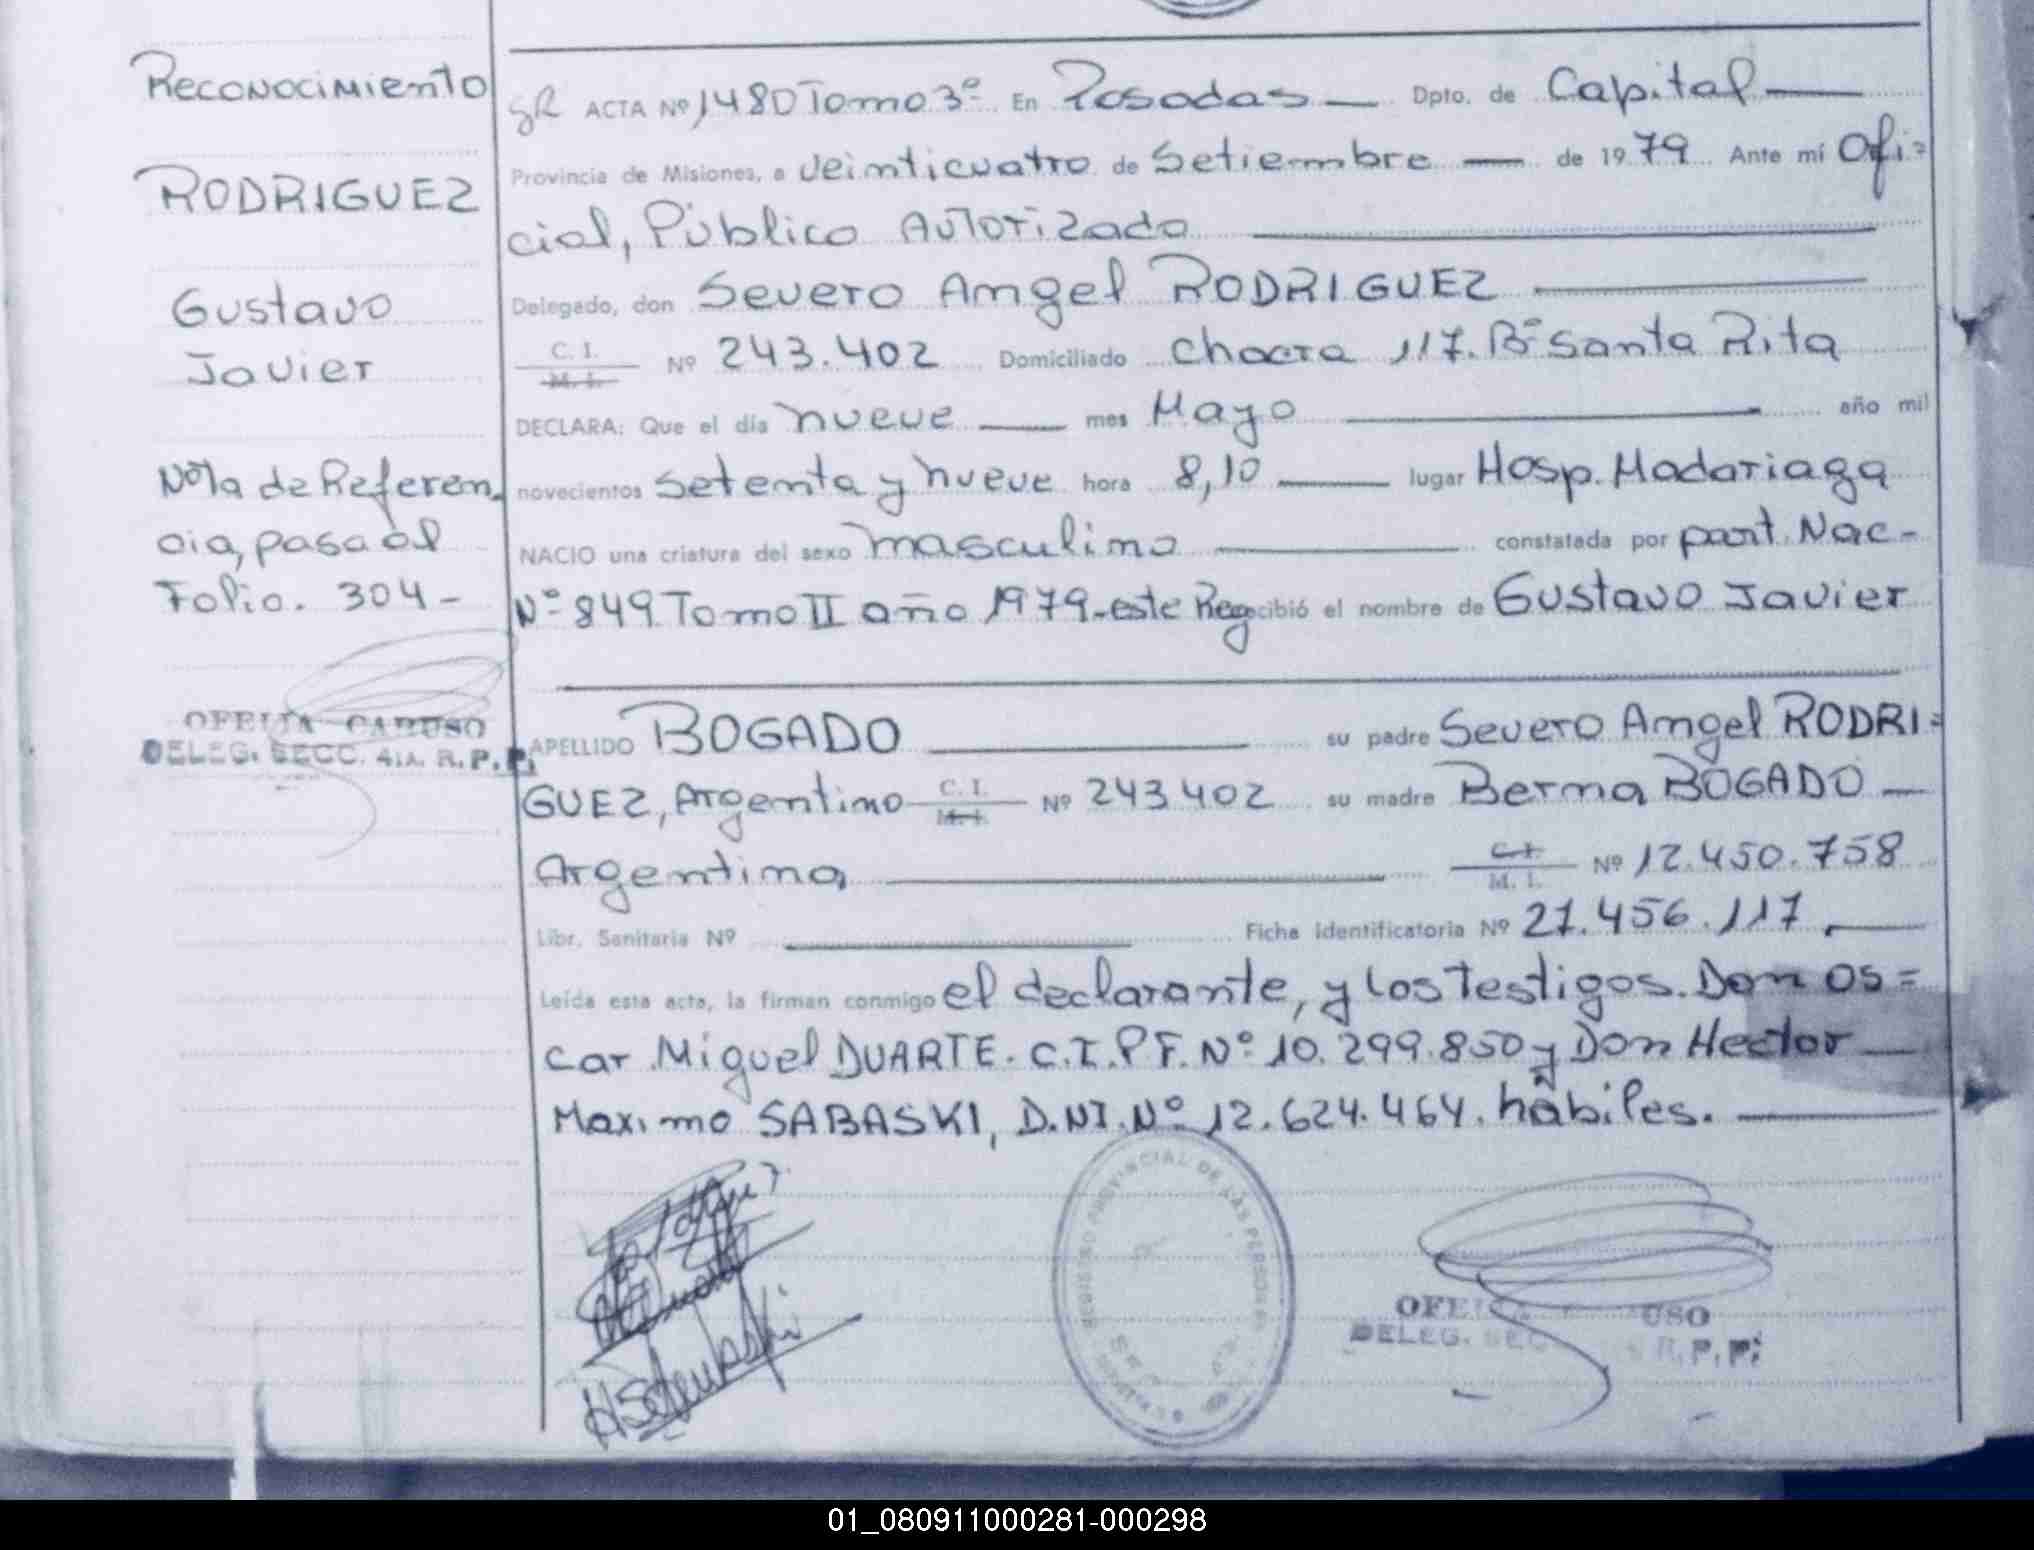 Reconocimiento
RODRIGUEZ
Gustavo
Javier
Nota de Referen
cia, pasa al
Folio. 304-
OFELIA CARUSO
DELEG. SECC. 4ta. R.P.P.
ACTA Nº 1480 Tomo 3º En Posadas — Dpto. de Capital —
Provincia de Misiones, a veinticuatro de Setiembre — de 1979 Ante mí Ofi=
cial, Público Autorizado
Delegado, don Severo Angel RODRIGUEZ
C. I. M. I. Nº 243.402 Domiciliado chacra 117. Bº Santa Rita
DECLARA: Que el día nueve — mes Mayo — año mil
novecientos setenta y nueve hora 8,10 — lugar Hosp. Madariaga
NACIO una criatura del sexo masculino — constatada por part. Nac-
Nº 849 Tomo II año 1979-este Reg cibió el nombre de Gustavo Javier
APELLIDO BOGADO — su padre Severo Angel RODRI=
GUEZ, Argentino C. I. M. I. Nº 243402 su madre Berma BOGADO —
Argentina — C. I. M. I. Nº 12.450.758
Libr. Sanitaria Nº — Ficha Identificatoria Nº 27.456.117
Leída esta acta, la firman conmigo el declarante, y los testigos. Don Os=
car Miguel DUARTE. C.I.P.F. Nº 10.299.850 y Don Hector —
Maximo SABASKI, D.N.I. Nº 12.624.464. hábiles. —
REGISTRO PROVINCIAL DE LAS PERSONAS
OFELIA CARUSO
DELEG. SEC R.P.P.
01_080911000281-000298